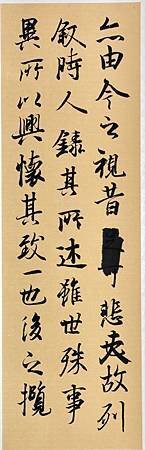 亦由今之視昔悲夫故列
敘時人錄其所述雖世殊事
異所以興懷其致一也後之攬